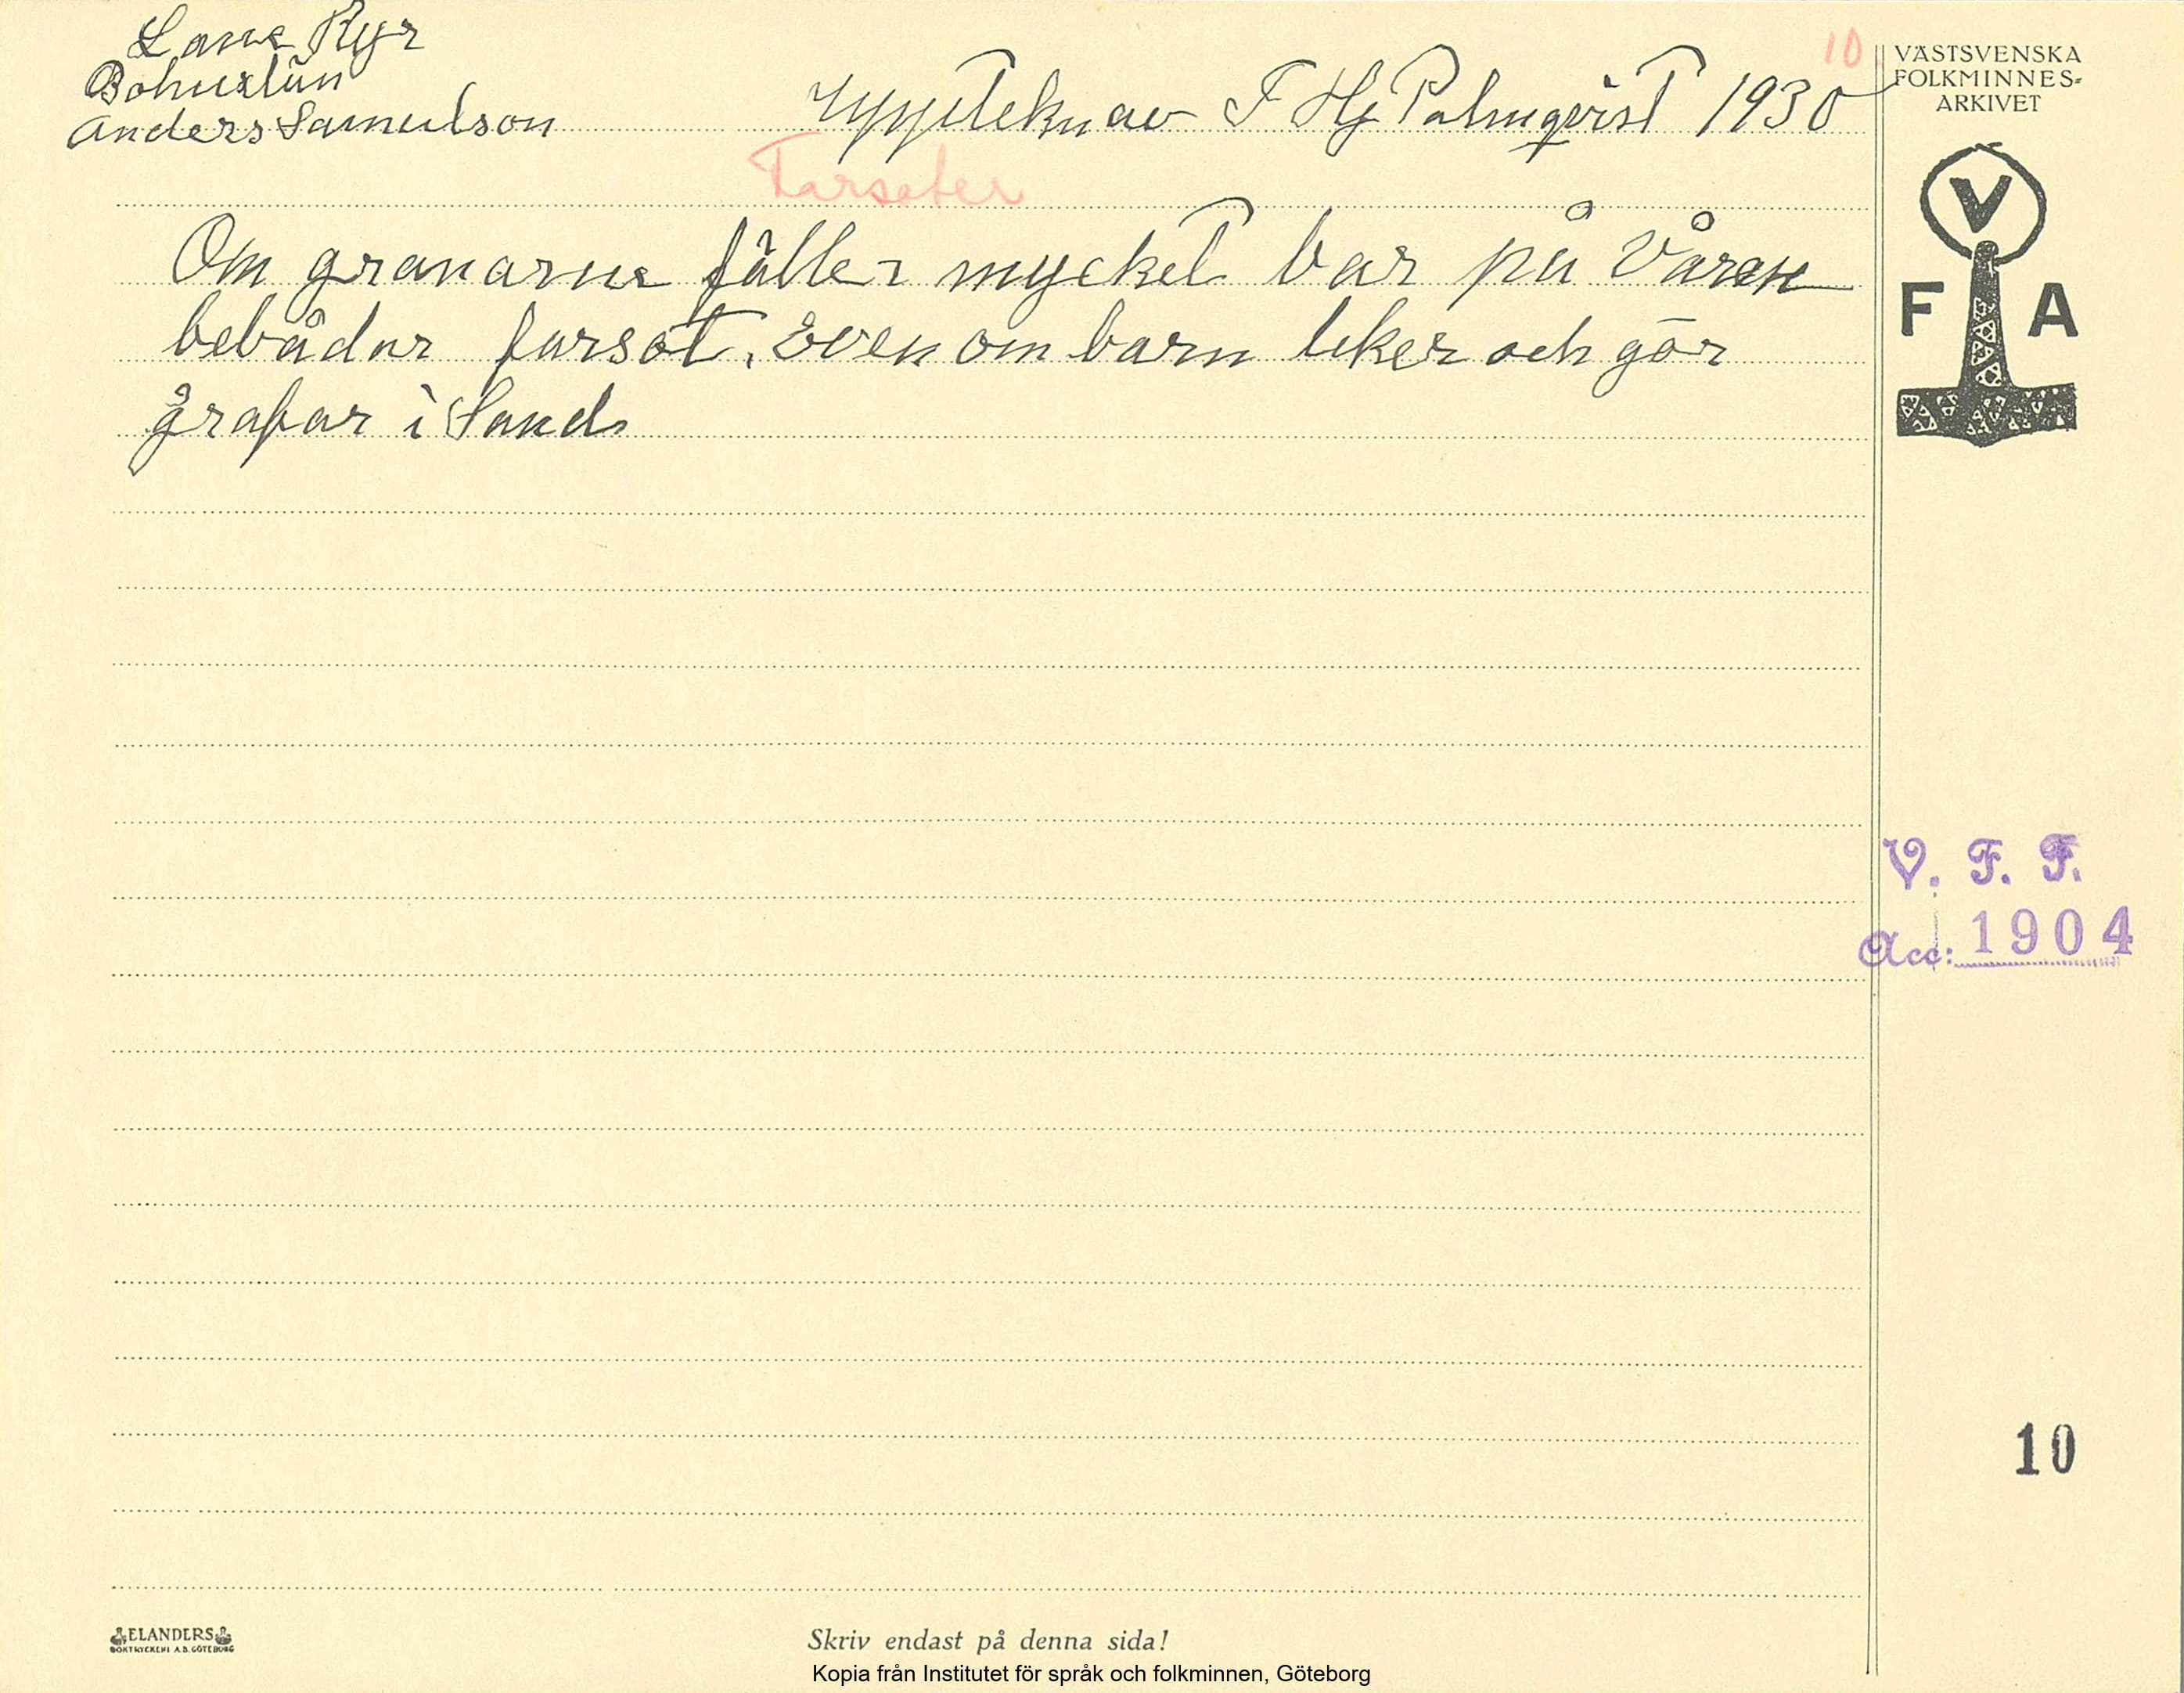 Lane Ryr
Bohuslän
Anders Samuelson
Uppteknav F Hj Palmqvist 1930
10
VÄSTSVENSKA
FOLKMINNES-
ARKIVET
Farsoter
V
F A
Om granarne fäller mycket bar på Våren
bebådar farsot, även om barn leker och gör
grafar i Sand
V. F. F.
Acc: 1904
10
ELANDERS
BOKTRYCKERI A.B. GÖTEBORG
Skriv endast på denna sida!
Kopia från Institutet för språk och folkminnen, Göteborg